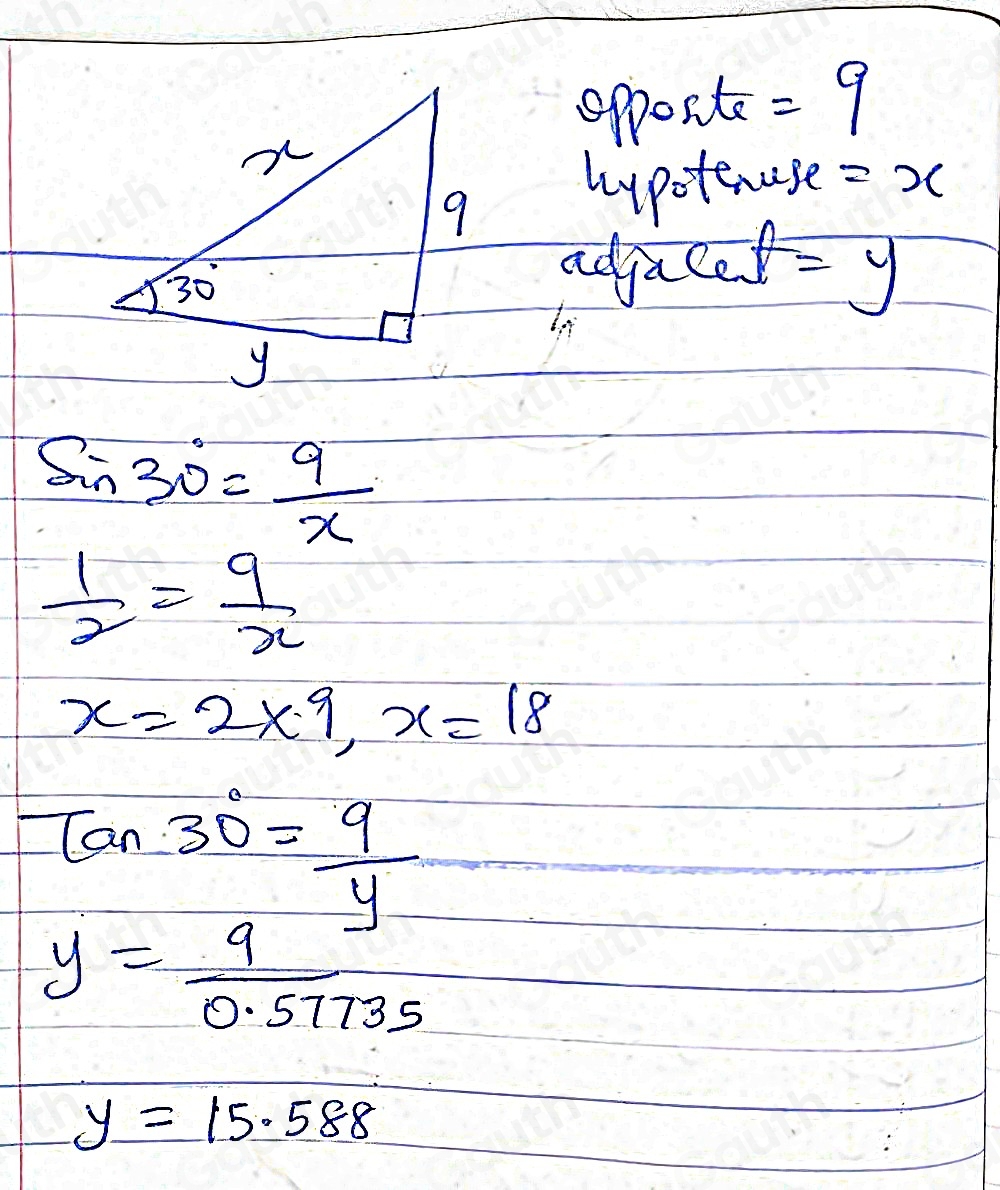 x
9
30°
y
opposite = 9
hypotenuse = x
adjacent = y
Sin 30° = 9/x
1/2 = 9/x
x = 2 x 9, x = 18
Tan 30° = 9/y
y = 9/0.57735
y = 15.588